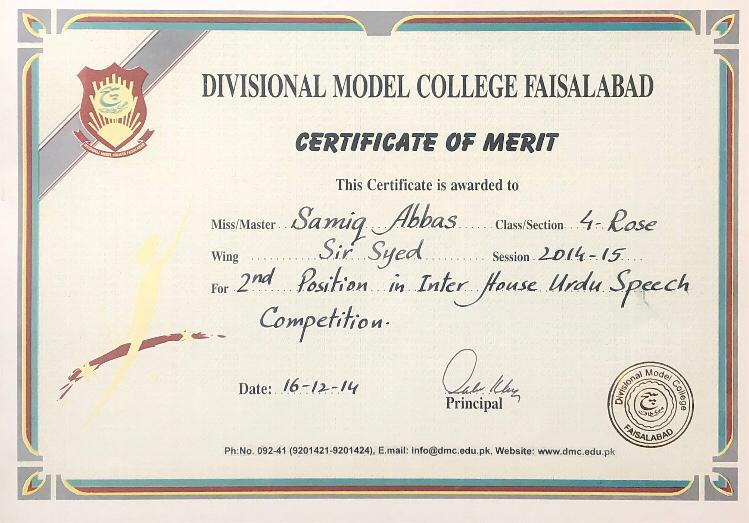 DIVISIONAL MODEL COLLEGE FAISALABAD
CERTIFICATE OF MERIT
This Certificate is awarded to
Miss/Master Samiq Abbas Class/Section 4-Rose
Wing Sir Syed Session 2014-15
For 2nd Position in Inter House Urdu Speech
Competition.
Date: 16-12-14
Principal
Divisional Model College
FAISALABAD
Ph:No. 092-41 (9201421-9201424), E.mail: info@dmc.edu.pk, Website: www.dmc.edu.pk